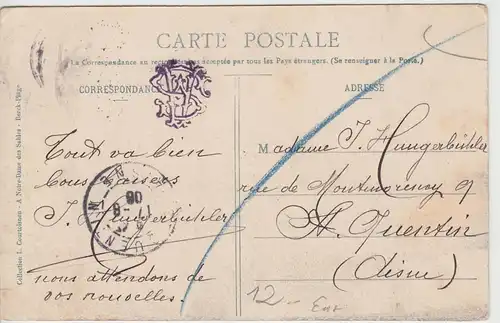 CARTE POSTALE
La Correspondance au recto n'est pas acceptée par tous les Pays étrangers. (Se renseigner à la Poste.)
CORRESPONDANCE
ADRESSE
Collection L. Courteheux - A Notre-Dame des Sables - Berck-Plage
Tout va bien
bons baisers
J. Hungerbühler
nous attendons de
vos nouvelles.
M
Madame J. Hungerbühler
rue de Montmorency 9
St. Quentin
(Aisne)
12.-